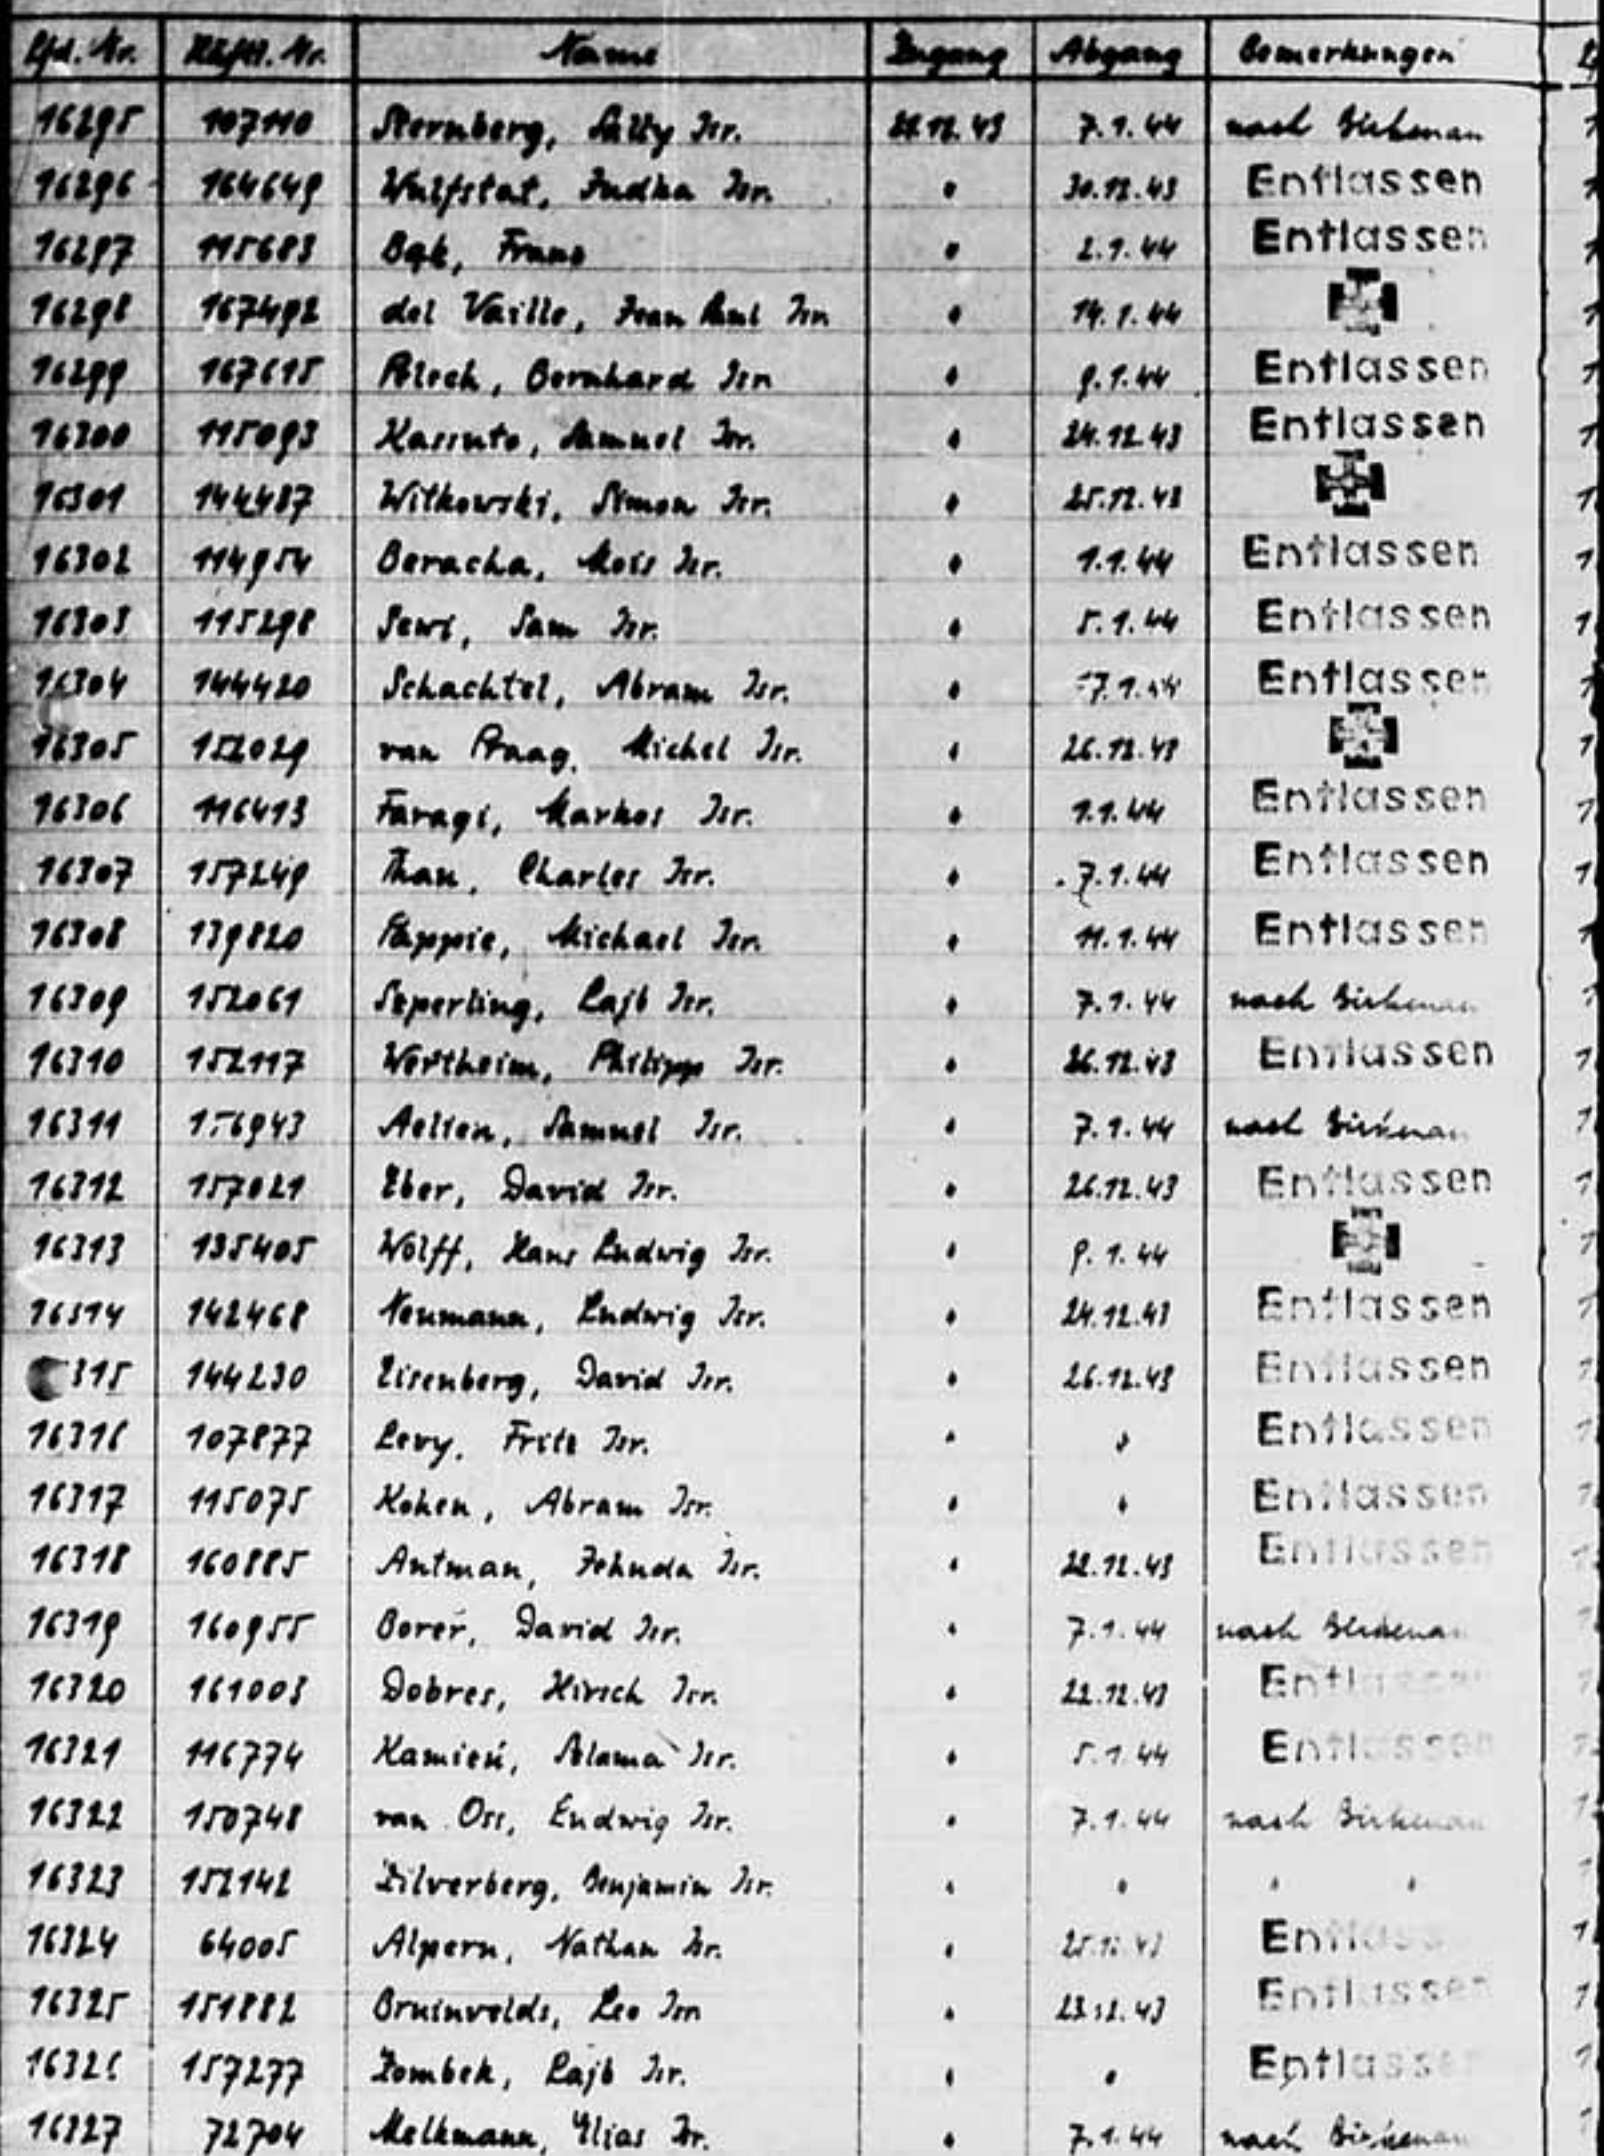 Lfd. Nr. Häftl. Nr. Name Zugang Abgang Bemerkungen
16295 107110 Sternberg, Sally Isr. 21.12.43 7.1.44 nach Birkenau
16296 164649 Wulfstat, Judka Isr. " 30.12.43 Entlassen
16297 115683 Bąk, Franz " 2.1.44 Entlassen
16298 167492 del Vaille, Jean Paul Isr. " 14.1.44
16299 167615 Bernhard Isr. " 9.1.44 Entlassen
16300 115093 Kassuto, Samuel Isr. " 24.12.43 Entlassen
16301 144487 Witkowski, Simon Isr. " 25.12.43
16302 114954 Beracha, Mois Isr. " 1.1.44 Entlassen
16303 115298 Sewi, Sam Isr. " 5.1.44 Entlassen
16304 144420 Schachtel, Abram Isr. " 7.1.44 Entlassen
16305 152029 van Praag, Michel Isr. " 26.12.43
16306 116413 Faragi, Markos Isr. " 1.1.44 Entlassen
16307 157249 Than, Charles Isr. " 7.1.44 Entlassen
16308 139820 Michael Isr. " 11.1.44 Entlassen
16309 152061 Szperling, Lajb Isr. " 7.1.44 nach Birkenau
16310 152117 Wertheim, Philipp Isr. " 26.12.43 Entlassen
16311 Aelion, Samuel Isr. " 7.1.44 nach Birkenau
16312 157021 Eber, David Isr. " 26.12.43 Entlassen
16313 135405 Wolff, Hans Ludwig Isr. " 9.1.44
16314 142468 Neumann, Ludwig Isr. " 24.12.43 Entlassen
315 144230 Eisenberg, David Isr. " 26.12.43 Entlassen
16316 107877 Levy, Fritz Isr. " " Entlassen
16317 115075 Kohen, Abram Isr. " " Entlassen
16318 160885 Antman, Jehuda Isr. " 22.12.43 Entlassen
16319 160955 Borer, David Isr. " 7.1.44 nach Birkenau
16320 161003 Dobres, Hirsch Isr. " 22.12.43 Entlassen
16321 116774 Kamień, Szlama Isr. " 5.1.44 Entlassen
16322 150748 van Oss, Ludwig Isr. " 7.1.44 nach Birkenau
16323 152142 Zilverberg, Benjamin Isr. " " " "
16324 64005 Alpern, Nathan Isr. " 25.12.43 Entlassen
16325 151882 Bruinvelds, Leo Isr. " 23.12.43 Entlassen
16326 157277 Zombek, Lajb Isr. " " Entlassen
16327 72704 Melkmann, Elias Isr. " 7.1.44 nach Birkenau